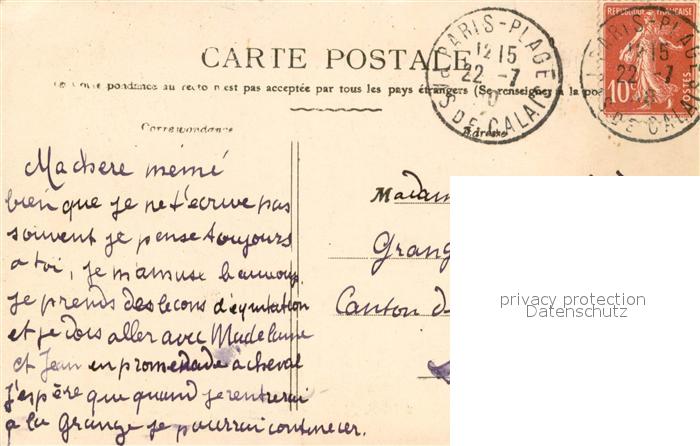 CARTE POSTALE
La Correspondance au recto n'est pas acceptée par tous les pays étrangers (Se renseigner à la poste)
Correspondance
Adresse
PARIS-PLAGE
12 15
22 -7
PAS DE CALAIS
RÉPUBLIQUE FRANÇAISE
10
POSTES
PARIS-PLAGE
12 15
22 -7
PAS DE CALAIS
Ma chere mémé
bien que je ne t'ecrive pas
souvent je pense toujours
a toi, je m'amuse beaucoup
je prends des lecons d'equitation
et je dois aller avec Madelaine
et Jean en promenade a cheval
J'espère que quand je rentrerai
a la Grange je pourrai continuer.
Madam
Grang
Canton d
privacy protection
Datenschutz